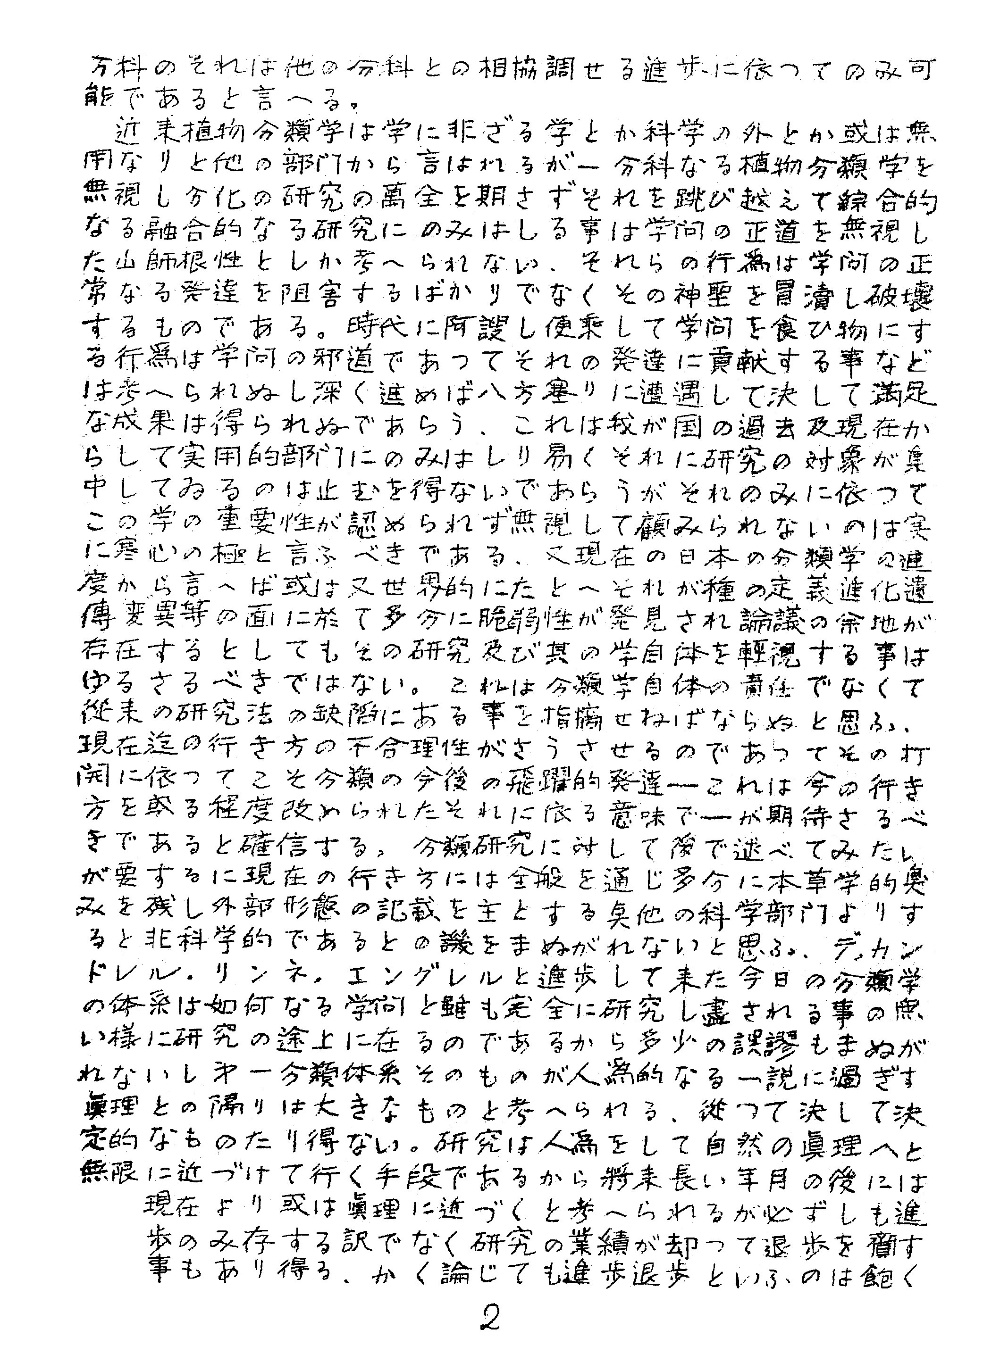 分科のそれは他の分科との相協調せる進歩に依つてのみ可
能であると言へる。
近来植物分類学は学に非ざる学とか科学の外とか或は無
用なりと他の部門から言はれるが一分科なる植物分類学を
無視し分化の研究の萬全を期さずそれを跳び越えて綜合的
なる融合的なる研究にのみはしる事は学問の正道を無視し
た山師根性としか考へられない、それらの行為は学問の正
常なる発達を阻害するばかりでなくその神聖を冒瀆し破壊
するものである。時代に阿諛し便乗して学問を食ひ物にす
る行為は学問の邪道であつてそれの発達に貢献する事など
は考へられぬし深く進めば八方塞りに遭遇して決して満足
な成果は得られぬであらう、これは我が国の過去及現在か
らして実用的部門にのみはしり易くそれに研究の対象が集
中してゐるのは止むを得ないであらうがそれのみに依つて
この学の重要性が認められず無視して顧みられないのは実
に寒心の極と言ふべきである、又現在の日本の分類学の進
度から言へば或は又世界的にたとへそれが種の定義進化遺
傳変異等の面に於て多分に脆弱性が発見され論議の余地が
存在するとしてもその研究及び其の学自体を輕視する事は
ゆるさるべきではない。これは分類学自体の責任でなくて
従来の研究法の缺陥にある事を指摘せねばならぬと思ふ、
現在迄の行き方の不合理性がさうさせるのであつてその打
開に依つてこそ分類の今後の飛躍的発達—これは今の行き
方を或る程度改められたそれに依る意味で—が期待さるべ
きであると確信する。分類研究に対して後で述べてみたい
が要するに現在の行き方には全般を通じ多分に本草学的臭
みを残し外部形態の記載を主とする臭他の科学部門よりす
ると非科学的であるとの譏をまぬがれないと思ふ、デカン
ドレル・リンネ・エングレルと進歩して来た今日の分類学
の体系は如何なる学問と雖も完全に研究し盡される事の無
い様に研究の途上に在るのであるから多少の誤謬もまぬが
れないし第一分類体系そのものが人為的なる一説に過ぎす
眞理との隔りは大きなものと考へられる、従つて決して決
定的なものたり得ない。研究は人為をして自然の眞理へと
無限に近づけて行く手段であるから将来長い年月の後には
現在より或は眞理に近づくと考へられるが必ずしも進
歩のみ存する訳でなく研究の業績が却つて退歩を齎す
事もあり得る、かく論じても進歩退歩といふのは飽く
2